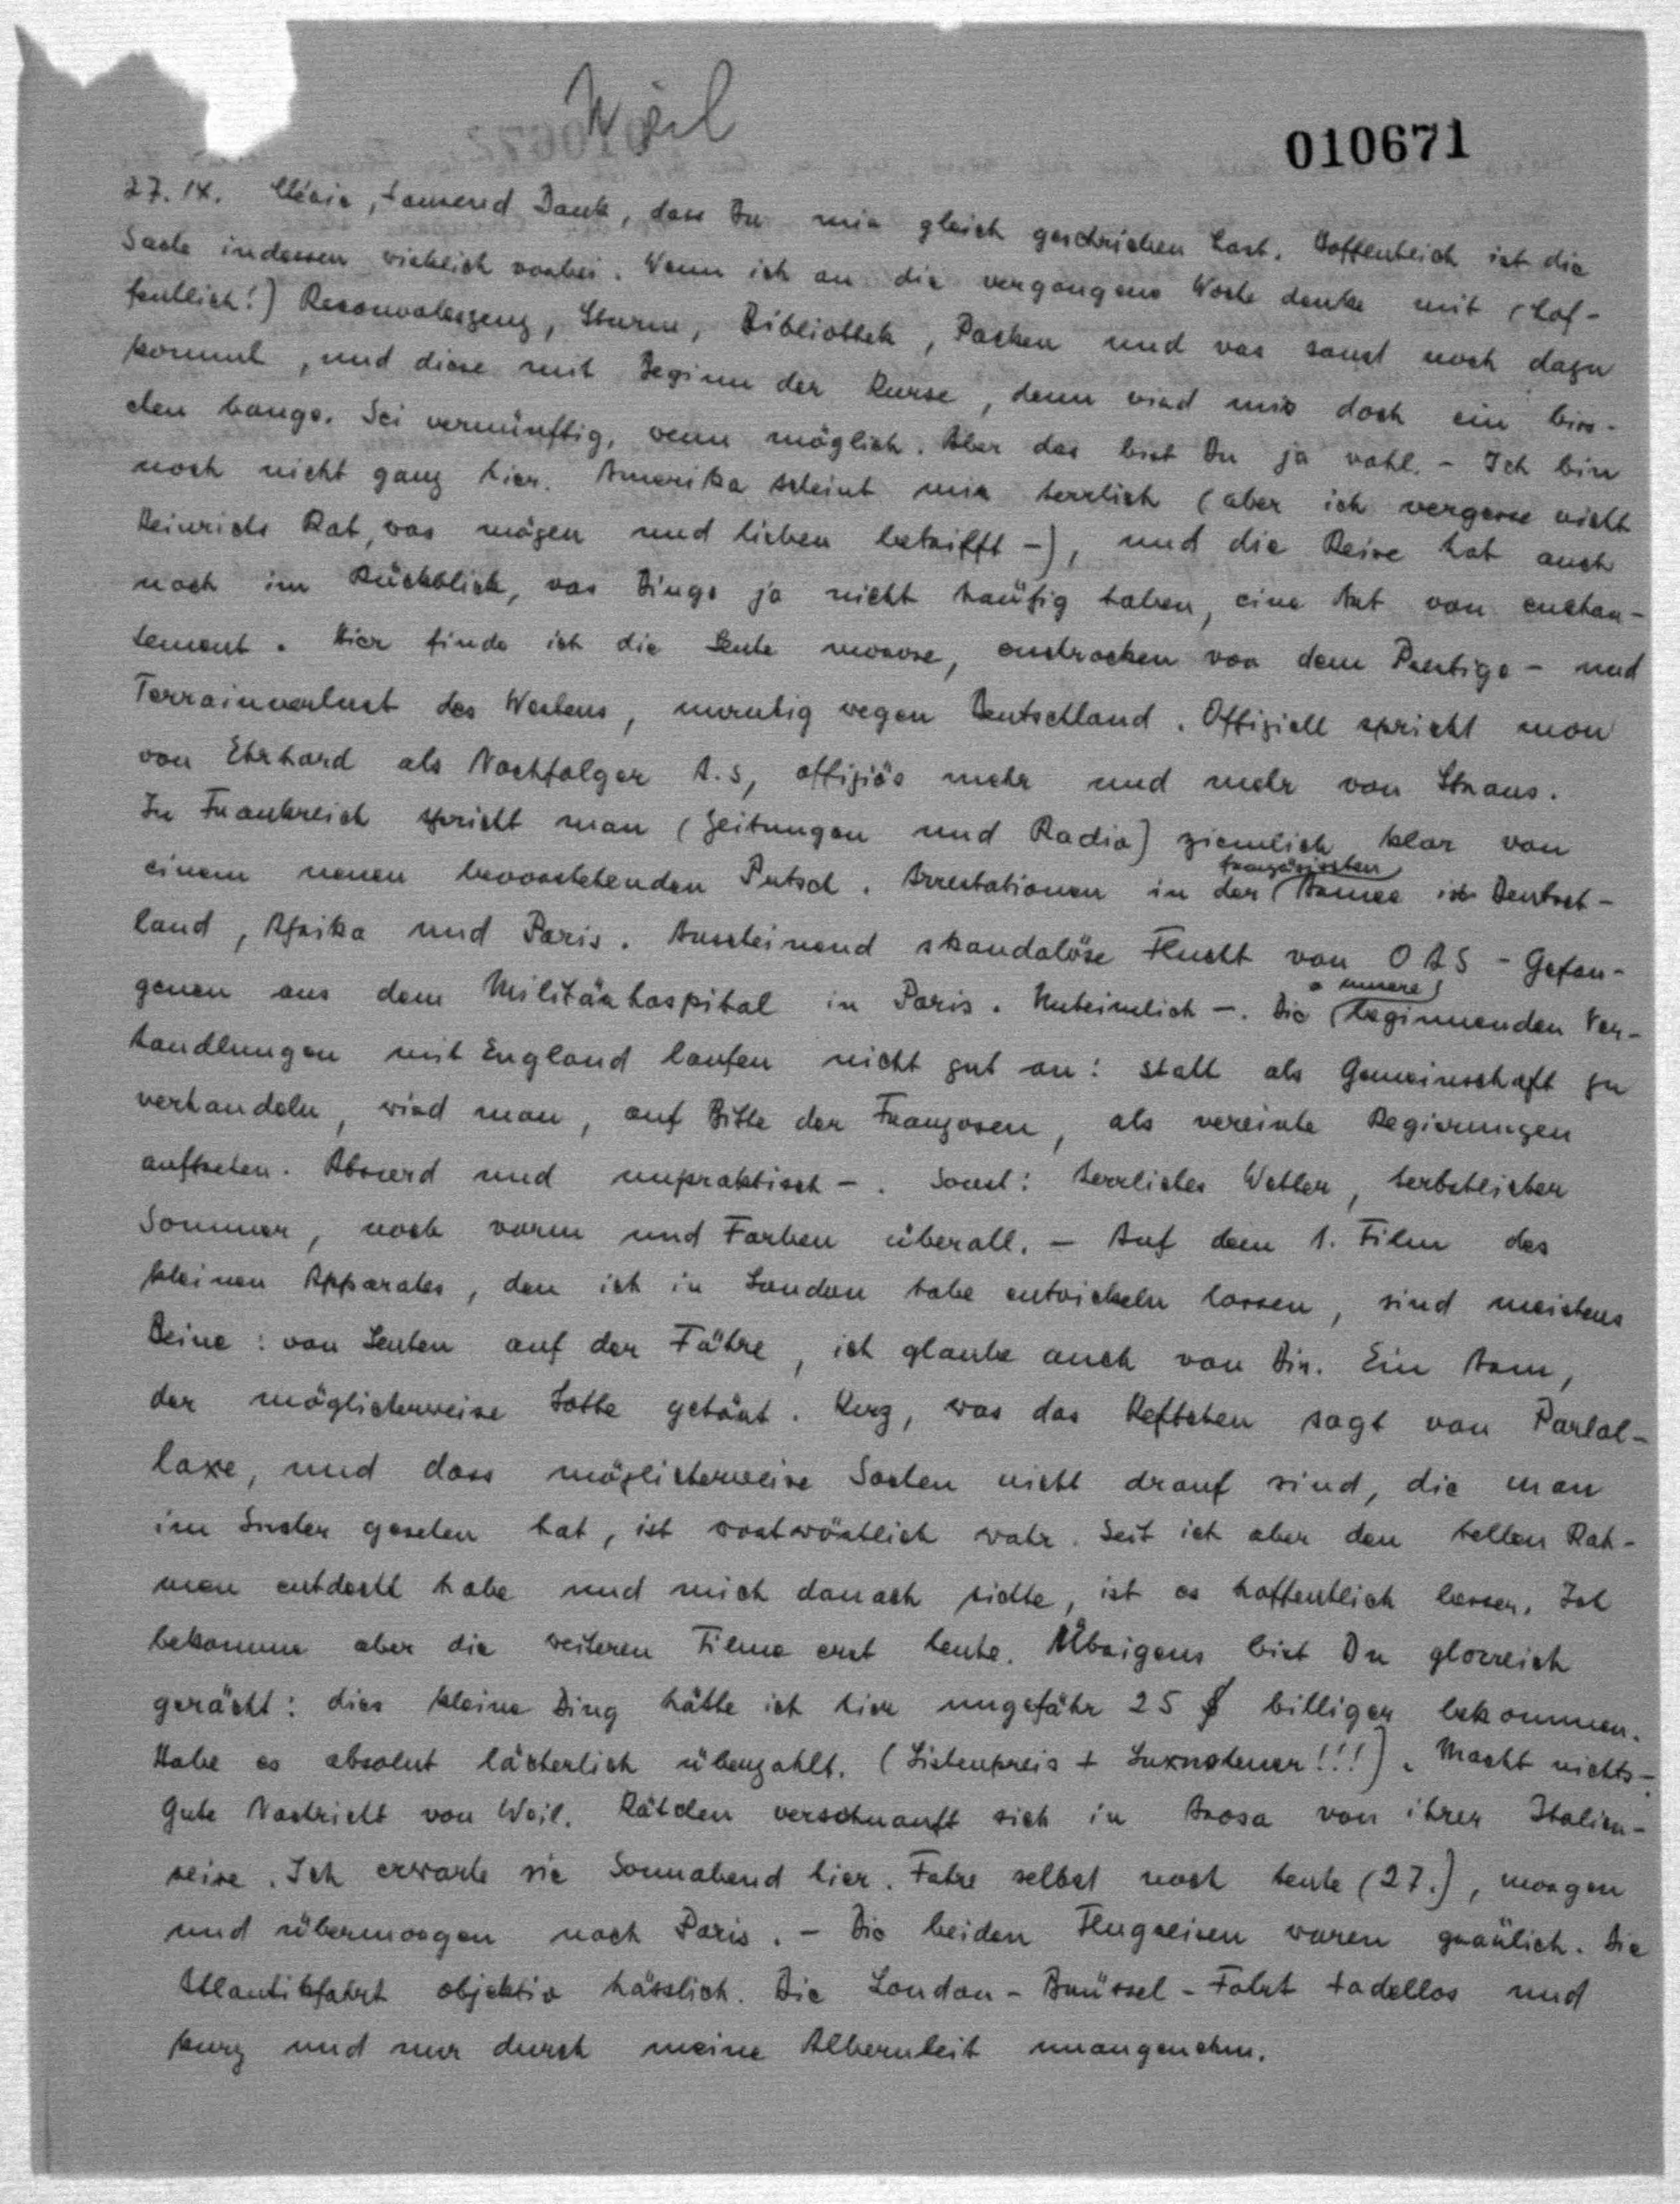 Weil
010671
27. IX. Chérie, tausend Dank, dass Du mir gleich geschrieben hast. Hoffentlich ist die
Sache indessen wirklich vorbei. Wenn ich an die vergangene Woche denke mit (hof-
fentlich!) Reconvaleszenz, Sturm, Bibliothek, Packen und was sonst noch dazu
kommt, und diese mit Beginn der Kurse, dann wird mir doch ein biss-
chen bange. Sei vernünftig, wenn möglich. Aber das bist Du ja wohl. – Ich bin
noch nicht ganz hier. Amerika scheint mir herrlich (aber ich vergesse nicht
Heinrichs Rat, was mögen und lieben betrifft –), und die Reise hat auch
noch im Rückblick, was Dinge ja nicht häufig haben, eine Art von enchan-
tement. Hier finde ich die Leute morose, erschrocken von dem Prestige – und
Terrainverlust des Westens, unruhig wegen Deutschland. Offiziell spricht man
von Ehrhard als Nachfolger A.s, offiziös mehr und mehr von Straus.
In Frankreich spricht man (Zeitungen und Radio) ziemlich klar von
einem neuen bevorstehenden Putsch. Arrestationen in der französischen Armee in Deutsch-
land, Afrika und Paris. Anscheinend skandalöse Flucht von OAS-Gefan-
genen aus dem Militärhospital in Paris. Unheimlich –. Die beginnenden Ver-
handlungen mit England laufen nicht gut an: statt als Gemeinschaft zu
verhandeln, wird man, auf Bitte der Franzosen, als vereinte Regierungen
auftreten. Absurd und unpraktisch –. Sonst: herrliches Wetter, herbstlicher
Sommer, noch warm und Farben überall. – Auf dem 1. Film des
kleinen Apparates, den ich in London habe entwickeln lassen, sind meistens
Beine: von Leuten auf der Fähre, ich glaube auch von Dir. Ein Arm,
der möglicherweise Lotte gehört. Kurz, was das Heftchen sagt von Parlal-
laxe, und dass möglicherweise Sachen nicht drauf sind, die man
im Sucher gesehen hat, ist wortwörtlich wahr. Seit ich aber den hellen Rah-
men entdeckt habe und mich danach richte, ist es hoffentlich besser. Ich
bekomme aber die weiteren Filme erst heute. Übrigens bist Du glorreich
gerächt: dies kleine Ding hätte ich hier ungefähr 25 $ billiger bekommen.
Habe es absolut lächerlich überzahlt. (Listenpreis + Luxusteuer!!!). Macht nichts –
Gute Nachricht von Weil. Kätchen verschnauft sich in Arosa von ihrer Italien-
reise. Ich erwarte sie Sonnabend hier. Fahre selbst noch heute (27.), morgen
und übermorgen nach Paris. – Die beiden Flugreisen waren greulich. Die
Atlantikfahrt objektiv hässlich. Die London-Brüssel-Fahrt tadellos und
kurz und nur durch meine Albernheit unangenehm.